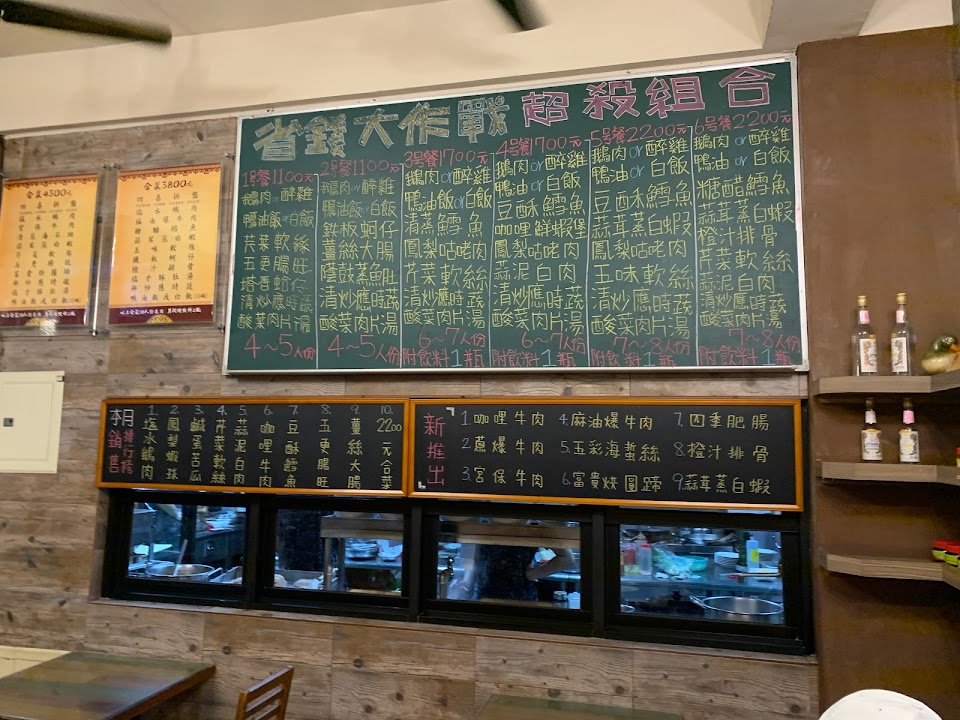 省錢大作戰 超殺組合
1号餐1100元
鵝肉or醉雞
鴨油飯or白飯
芹菜軟絲
五更腸旺
塔香蛤蜊
清炒時蔬
酸菜肉片湯
4～5人份
2号餐1100元
鵝肉or醉雞
鴨油飯or白飯
鉄板蚵仔
薑絲大腸
蔭鼓蒸魚肚
清炒應時蔬
酸菜肉片湯
4～5人份
3号餐1700元
鵝肉or醉雞
鴨油飯or白飯
清蒸鱈魚
鳳梨咕咾肉
芹菜軟絲
蒜泥白肉
清炒應時蔬
酸菜肉片湯
6～7人份
附飲料1瓶
4号餐1700元
鵝肉or醉雞
鴨油or白飯
豆酥鱈魚
咖哩鮮蝦煲
鳳梨咕咾肉
蒜泥白肉
清炒應時蔬
酸菜肉片湯
6～7人份
附飲料1瓶
5号餐2200元
鵝肉or醉雞
鴨油or白飯
豆酥鱈魚
蒜茸蒸白蝦
鳳梨咕咾肉
五味軟絲
清炒應時蔬
酸菜肉片湯
7～8人份
附飲料1瓶
6号餐2200元
鵝肉or醉雞
鴨油or白飯
糖醋鱈魚
蒜茸蒸白蝦
橙汁排骨
芹菜軟絲
蒜泥白肉
清炒應時蔬
酸菜肉片湯
7～8人份
附飲料1瓶
合菜4300元
合菜3800元
本月銷售排行榜
1.塩水鵝肉
2.鳳梨蝦球
3.鹹蛋苦瓜
4.芹菜軟絲
5.蒜泥白肉
6.咖哩牛肉
7.豆酥鱈魚
8.五更腸旺
9.薑絲大腸
10.2200元合菜
新推出
1.咖哩牛肉 4.麻油爆牛肉 7.四季肥腸
2.蔥爆牛肉 5.五彩海蜇絲 8.橙汁排骨
3.宮保牛肉 6.富貴烘圓蹄 9.蒜茸蒸白蝦